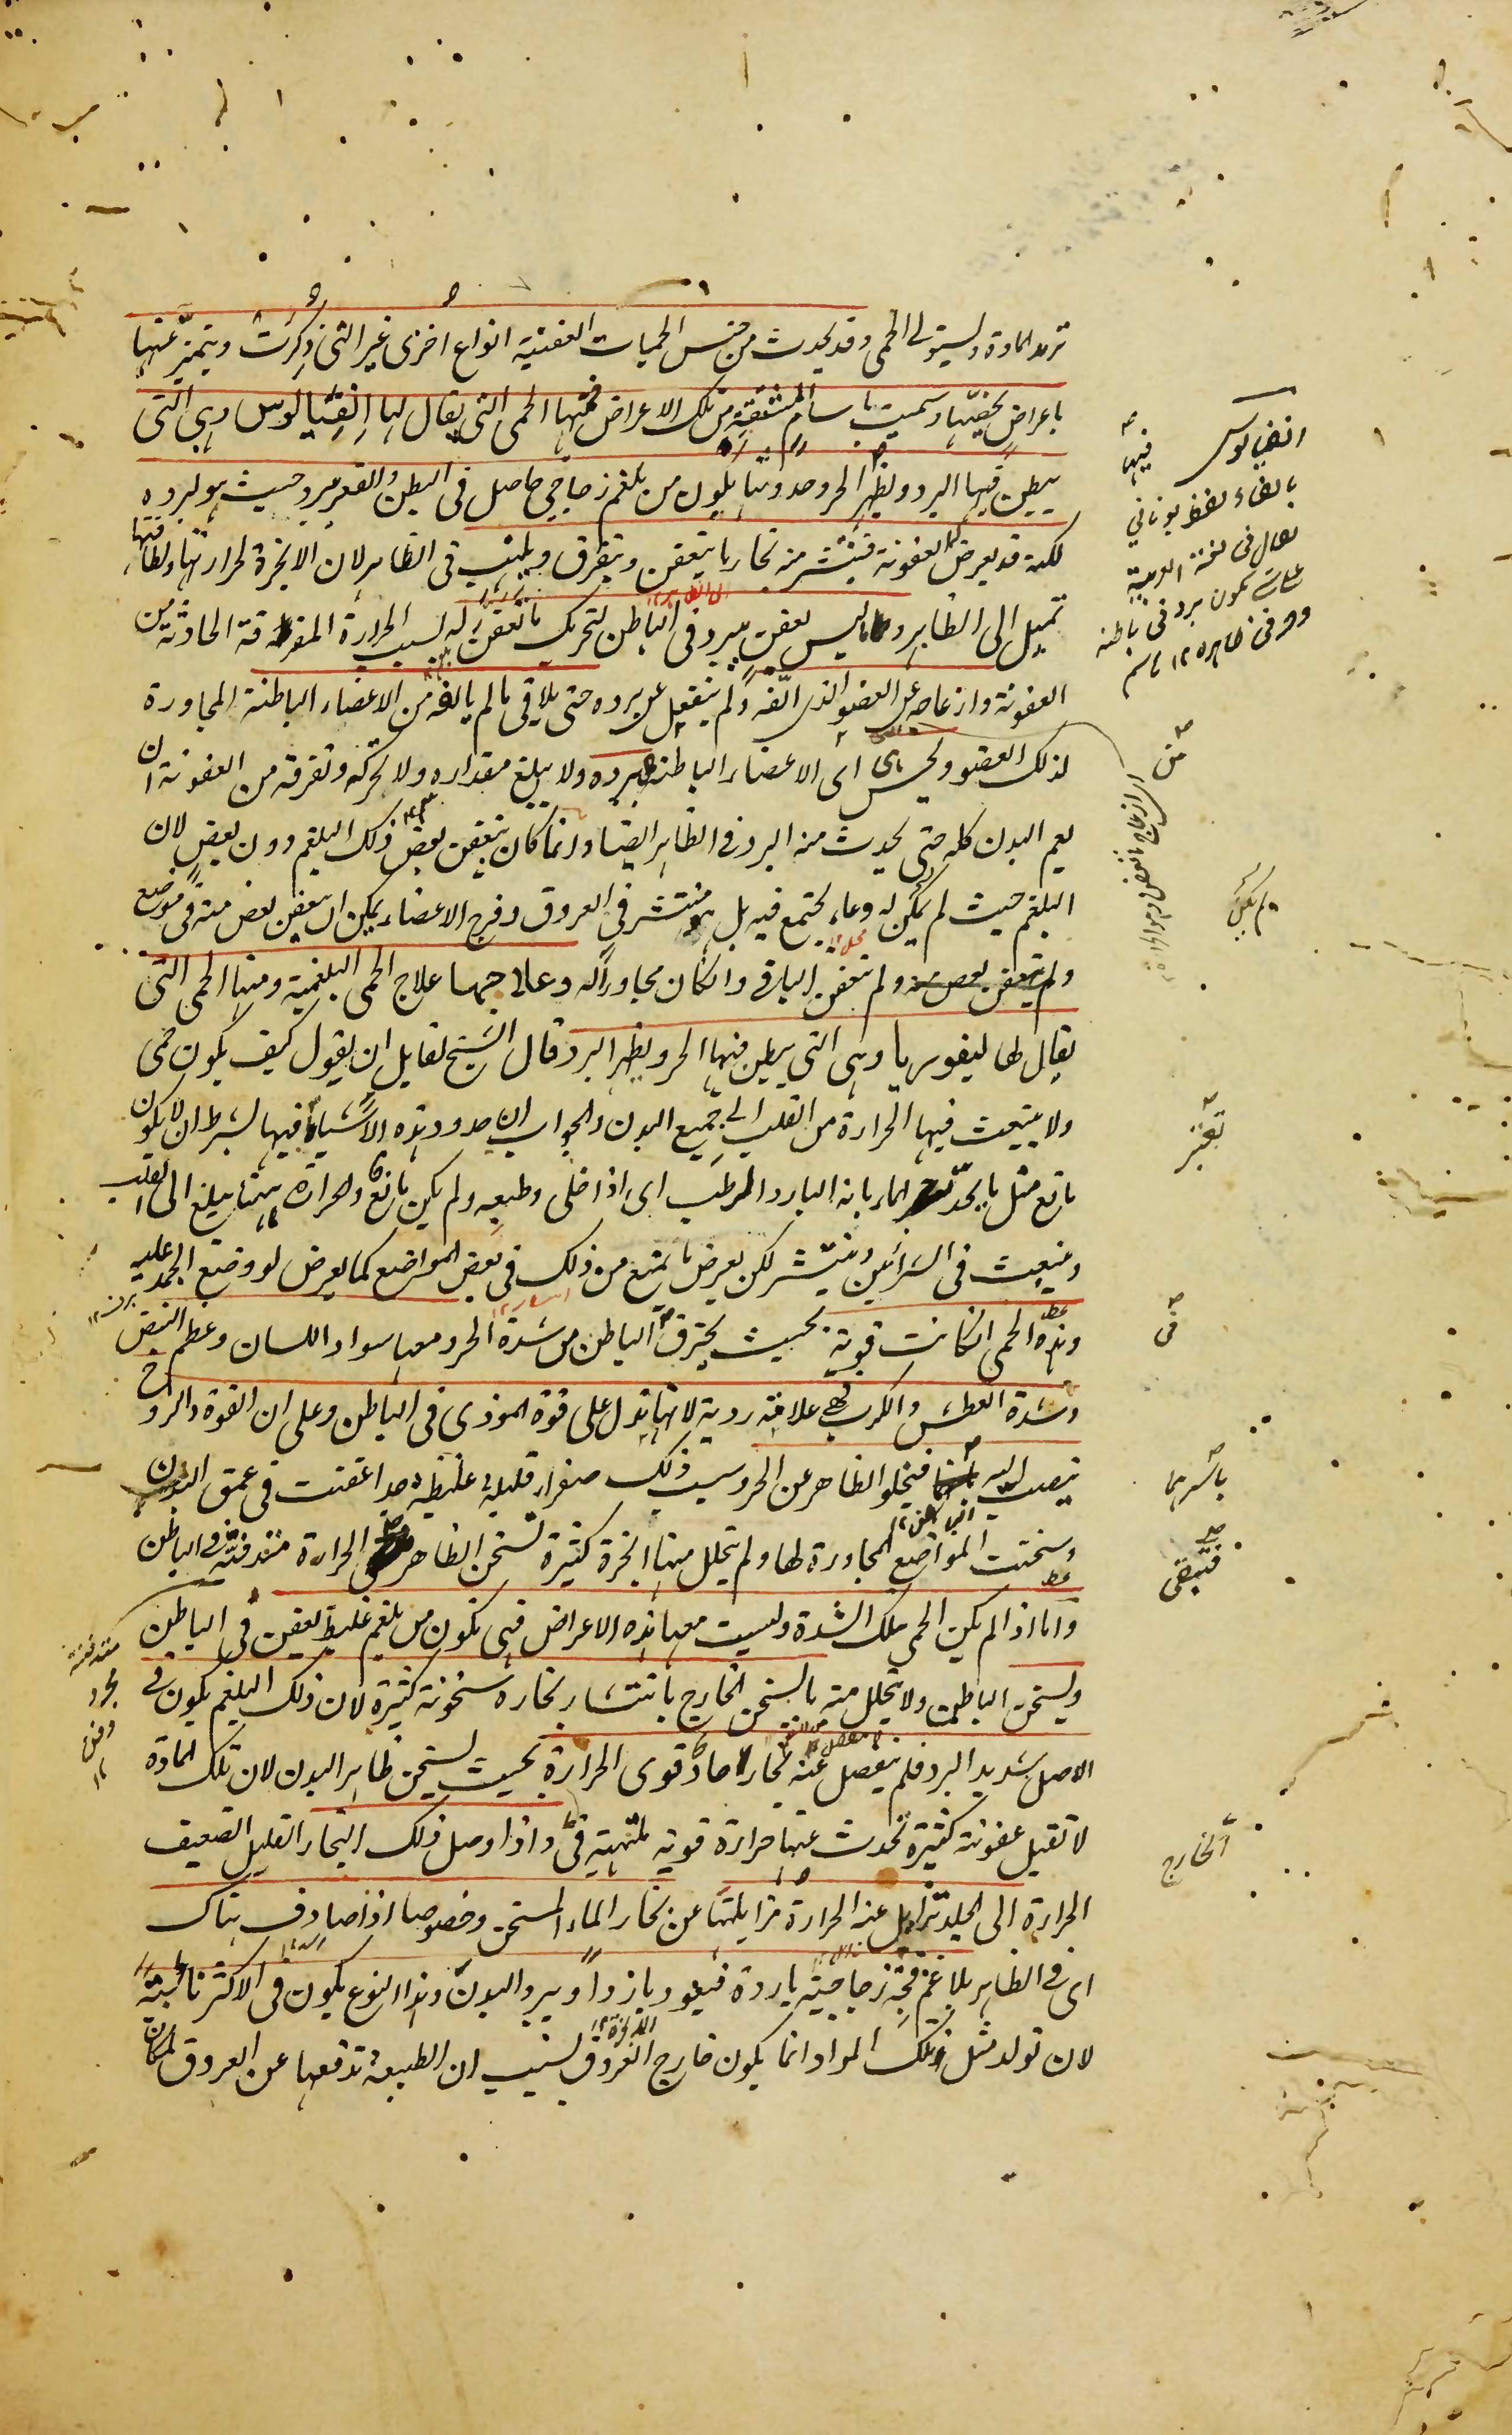 تزيد المادة وليستولى الحمى وقد يحدث من جنس الحميات العفنية انواع اخرى غير التى ذكرت ويتميز عنها
باعراض يخصّها وسميت باسام مشتقة من تلك الاعراض فمنها الحمى التى يقال لها انفيالوس وهي التى
يبطن فيها البرد ويظهر الحر وحدوثها يكون من بلغم زجاجي حاصل فى البطن والقعر يبرد حيث هو لبرده
لكنه قد يعرض له العفونة فينتشر منه بخار ما يتعفن ويتفرق ويلتهب فى الظاهر لان الابخرة لحرارتها ولطافتها
تميل الى الظاهر وما ليس يعفن يبرد فى الباطن لتحريك ما تعفن له بسبب الحرارة المفرقة الحادثة من
العفونة وازعاجه عن العضو الذى الّفه ولم ينفعل عن برده حتى يلاقى ما لم يالفه من الاعضاء الباطنة المجاورة
لذلك العضو ويحس اى الاعضاء الباطنة ببرده ولا يبلغ مقداره ولا تحركه وتفرقه من العفونة ان
يعم البدن كله حتى يحدث منه البرد فى الظاهر ايضا وانما كان يتعفن بعض ذلك البلغم دون بعض لان
البلغم حيث لم يكن له وعاء يجتمع فيه بل هو منتشر فى العروق وفرج الاعضاء يمكن ان يتعفن بعض منه فى موضع
ولم يتعفن الباقى وان كان مجاورا له وعلاجها علاج الحمى البلغمية ومنها الحمى التى
يقال لها ليفوريا وهى التى يبطن فيها الحر ويظهر البرد قال الشيخ لقايل ان يقول كيف يكون حمى
ولا ينبعث فيها الحرارة من القلب الى جميع البدن والجواب ان حدود هذه الاشياء فيها بشرط ان لا يكون
مانع مثل ما يحدّ الماء بانه البارد الرطب اى اذا خلى وطبعه ولم يكن مانع والحرارة ههنا يبلغ الى القلب
وينبعث فى الشرائين وينتشر لكن يعرض ما يمنع من ذلك فى بعض المواضع كما يعرض لو وضع الجمد عليه
وهذه الحمى ان كانت قوية بحيث يحترق الباطن من شدة الحر ومعها سواد اللسان وعظم النبض
وشدة العطش والكرب فهى علامة ردية لانها تدل على قوة الموذى فى الباطن وعلى ان القوة والروح
ينصب اليه فيخلو الظاهر عن الحر وسبب ذلك صفراء قليلة غليظة جدا عفنت فى عمق البدن
وسخنت المواضع المجاورة لها ولم يتحلل منها ابخرة كثيرة تسخن الظاهر الحرارة مندفنة فى الباطن
واما اذا لم يكن الحمى بتلك الشدة وليست معها هذه الاعراض فهى تكون من بلغم غليظ يعفن فى الباطن
ويسخن الباطن ولا يتحلل منه ما يسخن الخارج بانتشار بخاره سخونة كثيرة لان ذلك البلغم يكون فى
الاصل شديد البرد فلم ينفصل عنه بخار حاد قوى الحرارة بحيث يسخن ظاهر البدن لان تلك المادة
لا تقبل عفونة كثيرة تحدث عنها حرارة قوية ملتهبة قى واذا وصل ذلك البخار القليل الضعيف
الحرارة الى الجلد تزايل عنه الحرارة مزايلتها عن بخار الماء المسخن وخصوصا اذا صادف هناك
اى فى الظاهر بلاغم فجة زجاجية باردة فيعود باردا ويبرد البدن وهذا النوع يكون فى الاكثر نائبة
لان تولد مثل تلك المواد انما يكون خارج العروق بسبب ان الطبيعة تدفعها عن العروق
انفيالوس
فيها
بالفاء لفظ يونانى
من
ولم يكن
تعتبر
فى
باسرها
فتبقى
الخارج